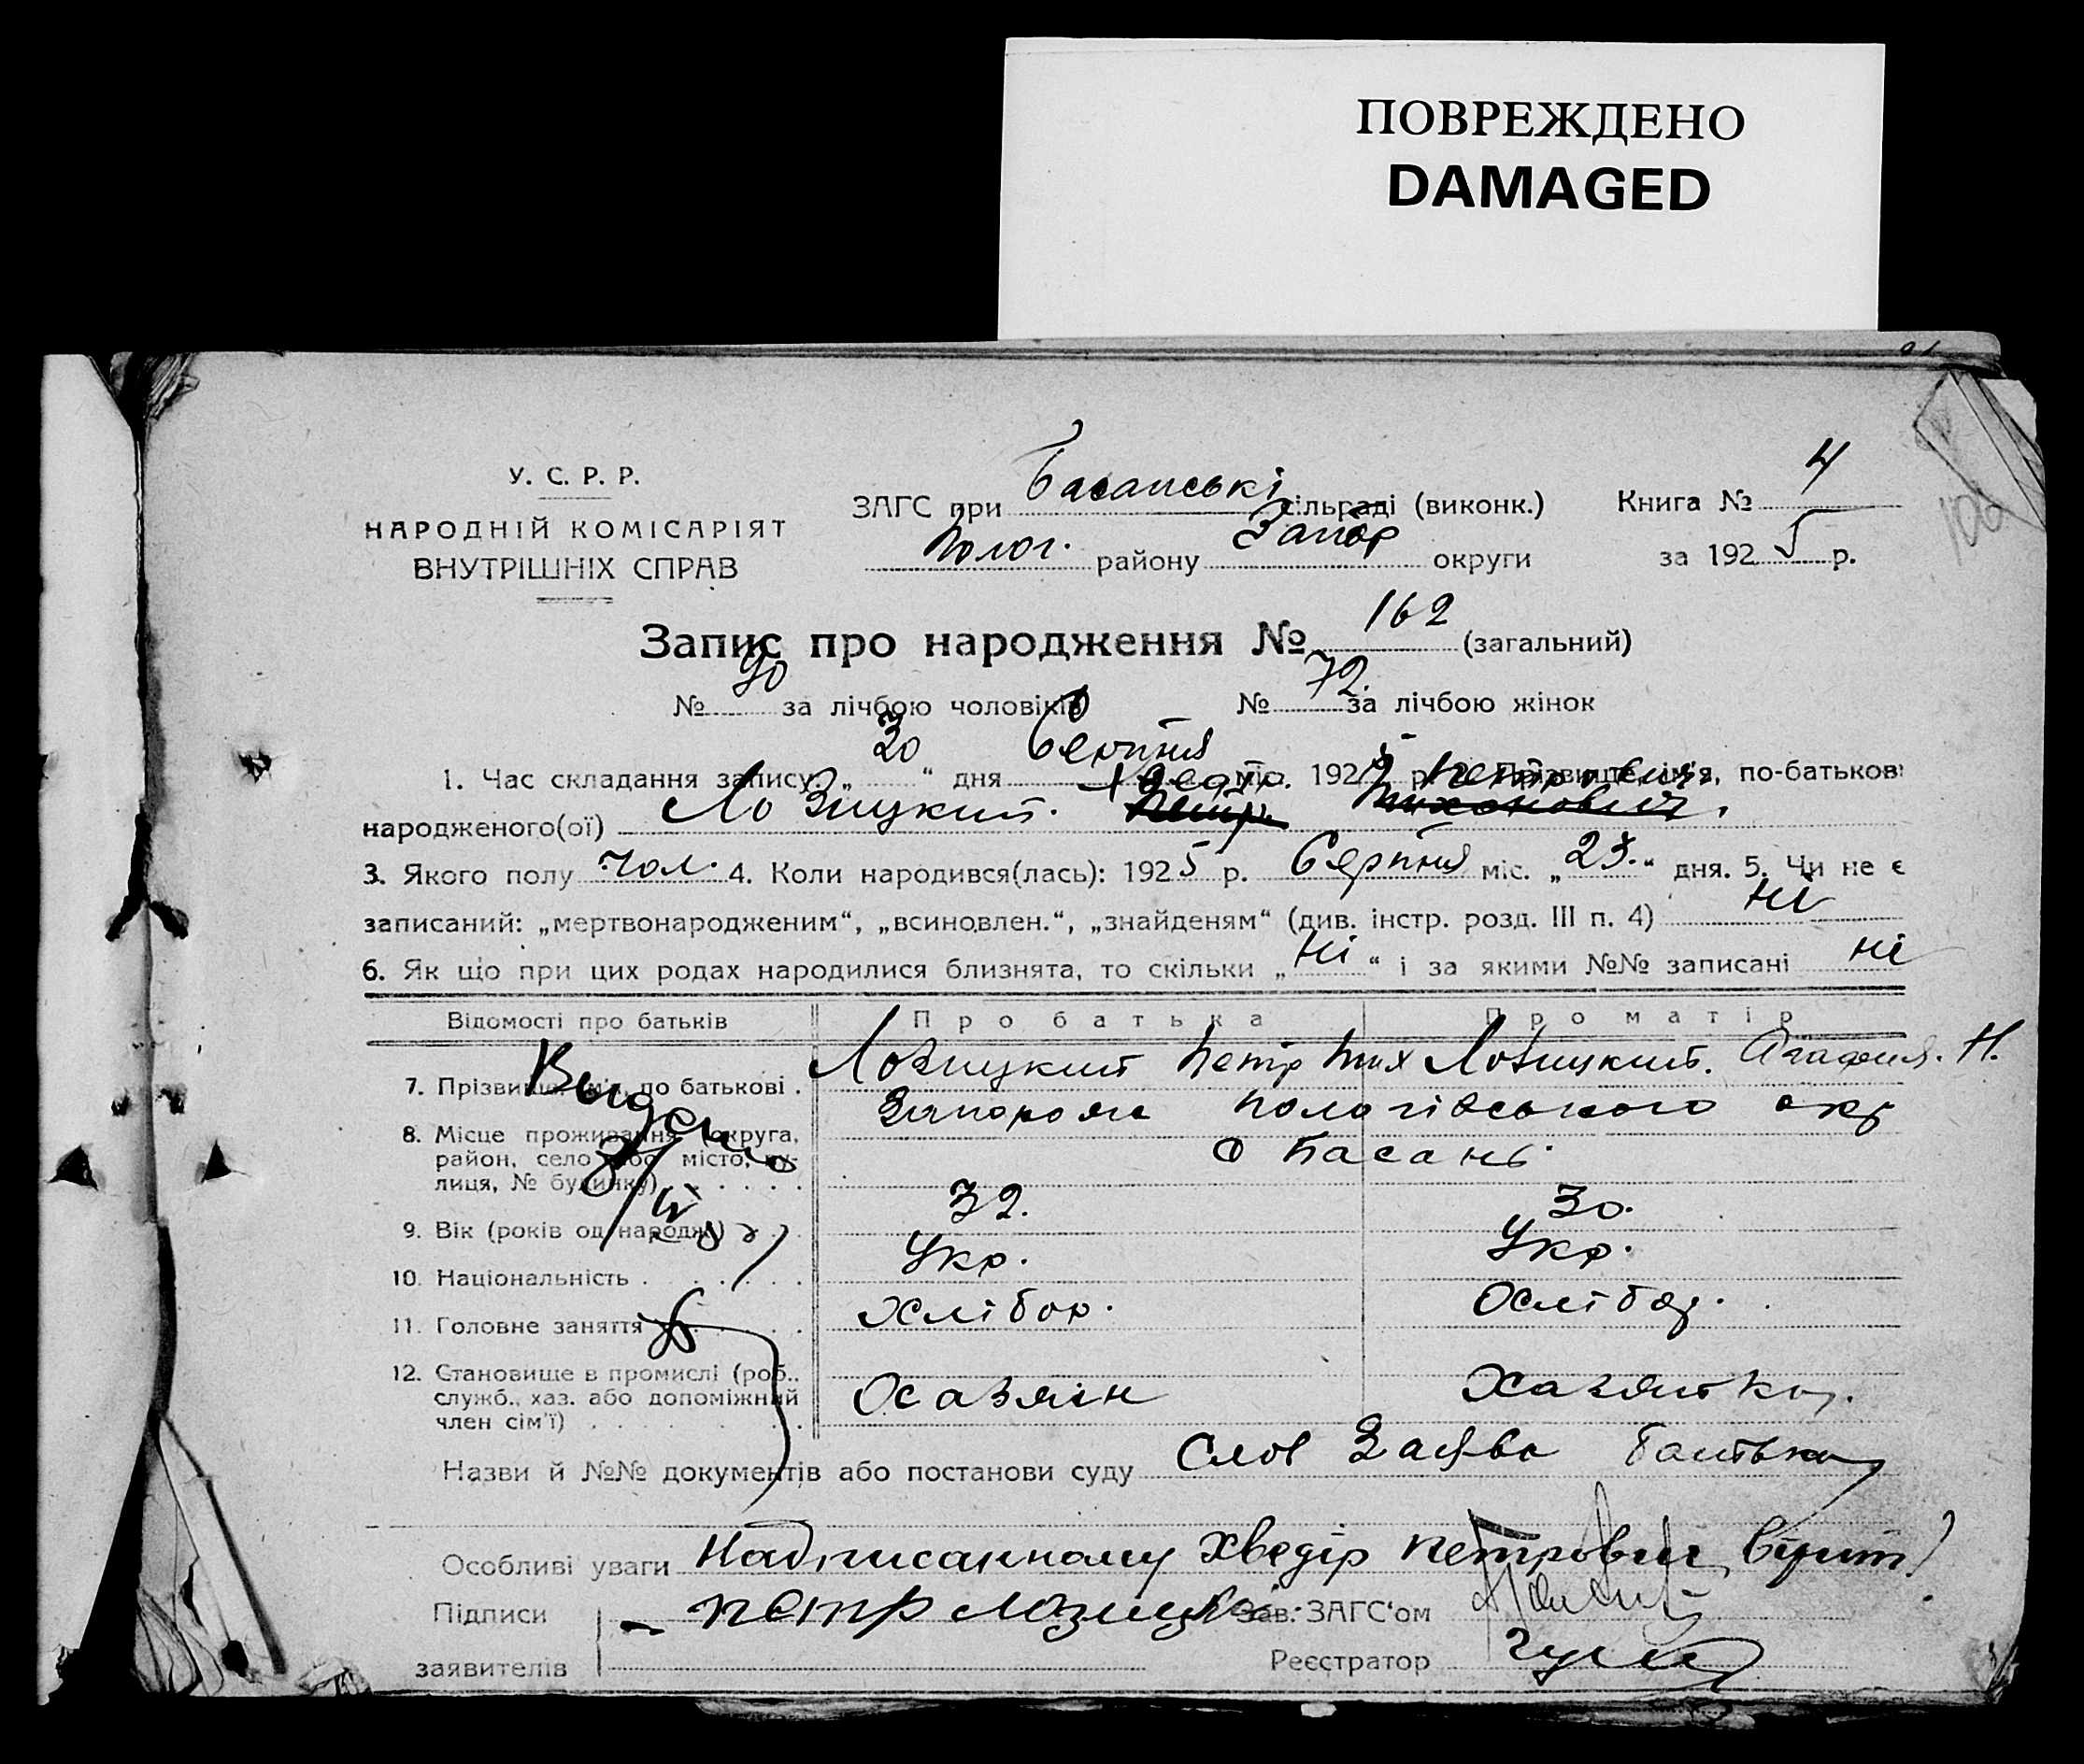 ПОВРЕЖДЕНО
DAMAGED
У. С. Р. Р.
НАРОДНІЙ КОМІСАРІЯТ
ВНУТРІШНІХ СПРАВ
ЗАГС при Басанські сільраді (виконк.)
Полог. району Запор округи
Книга № 4
за 1925 р.
106
Запис про народження № 162 (загальний)
№ 90 за лічбою чоловіків № 72. за лічбою жінок
1. Час складання запису: „30“ дня Серпня міс. 1925 р. 2. Прізвище, ім'я, по-батькові
Хведір Петрович
народженого(ої) Лозицкий. Петр. Тихонович.
3. Якого полу чол. 4. Коли народився(лась): 1925 р. Серпня міс. „23.“ дня. 5. Чи не є
записаний: „мертвонародженим“, „всиновлен.“, „знайденям“ (див. інстр. розд. III п. 4) ні
6. Як що при цих родах народилися близнята, то скільки „ні“ і за якими №№ записані ні
Відомості про батьків Про батька Про матір
7. Прізвище, ім'я, по батькові . Лозицкий Петр Тих Лозицкий. Агафия. Н.
8. Місце проживання (округа, район, село або місто, ву- лиця, № будинку) Запорожс Пологівського окр
с Басань.
9. Вік (років од народж.) 32. 30.
10. Національність Укр. Укр.
11. Головне заняття Хлібор. Хлібор.
12. Становище в промислі (роб., служб., хаз. або допоміжний член сім'ї) Хазяін Хазяйка.
Назви й №№ документів або постанови суду Слов Заява батька
Особливі уваги Надписанному Хведір Петрович вірит
Підписи заявителів Петр Лозицкі Зав. ЗАГС'ом
Реєстратор